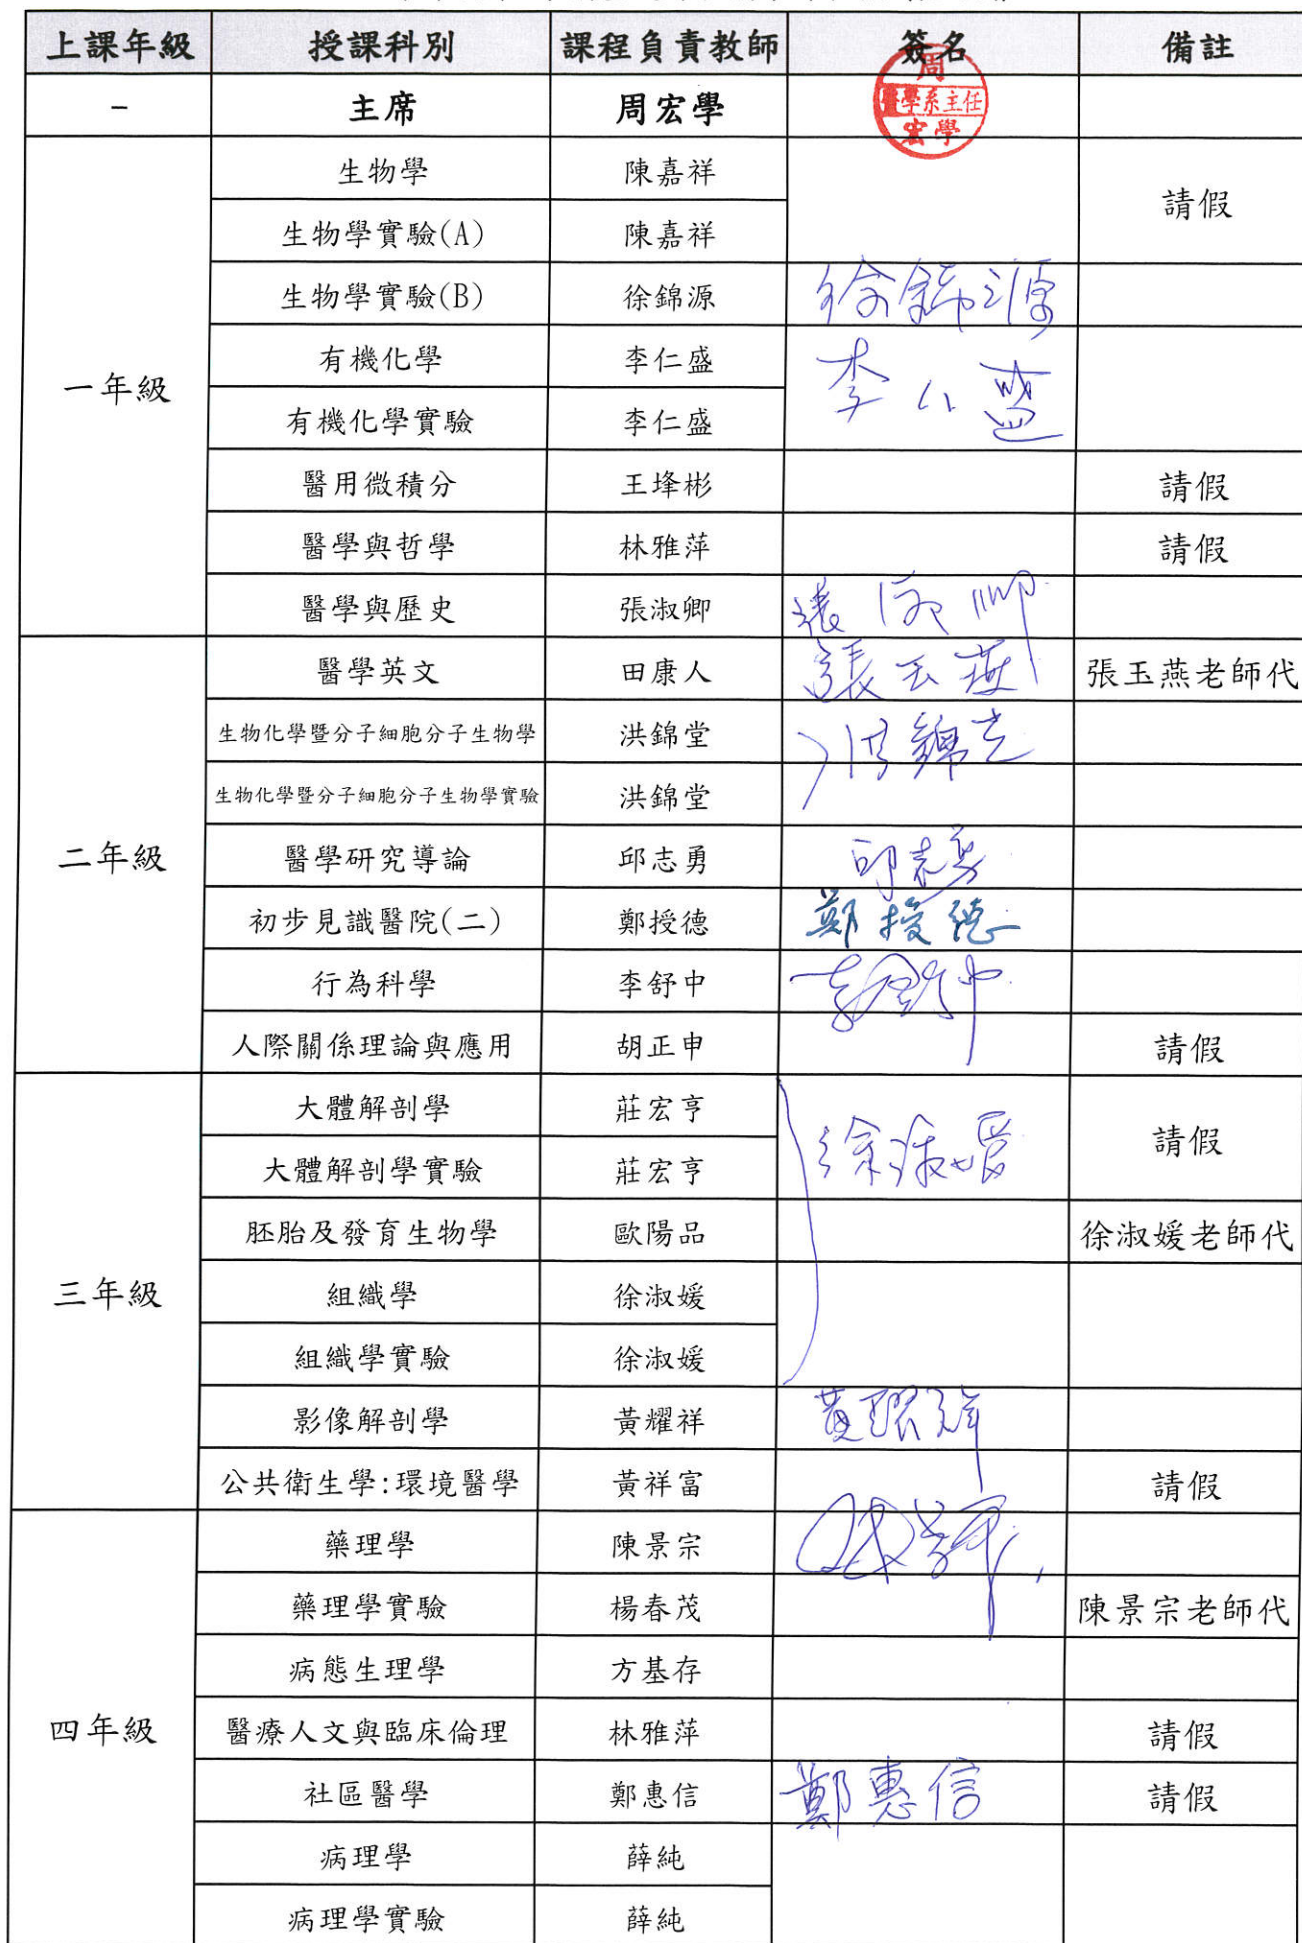 上課年級 授課科別 課程負責教師 簽名 備註
- 主席 周宏學 周 醫學系主任 宏學
一年級
生物學 陳嘉祥 請假
生物學實驗(A) 陳嘉祥
生物學實驗(B) 徐錦源 徐錦源
有機化學 李仁盛 李仁盛
有機化學實驗 李仁盛
醫用微積分 王埄彬 請假
醫學與哲學 林雅萍 請假
醫學與歷史 張淑卿 張淑卿
二年級
醫學英文 田康人 張玉燕 張玉燕老師代
生物化學暨分子細胞分子生物學 洪錦堂 洪錦堂
生物化學暨分子細胞分子生物學實驗 洪錦堂
醫學研究導論 邱志勇 邱志勇
初步見識醫院(二) 鄭授德 鄭授德
行為科學 李舒中 李舒中
人際關係理論與應用 胡正申 請假
三年級
大體解剖學 莊宏亨 徐淑媛 請假
大體解剖學實驗 莊宏亨
胚胎及發育生物學 歐陽品 徐淑媛老師代
組織學 徐淑媛
組織學實驗 徐淑媛
影像解剖學 黃耀祥 黃耀祥
公共衛生學:環境醫學 黃祥富 請假
四年級
藥理學 陳景宗 陳景宗
藥理學實驗 楊春茂 陳景宗老師代
病態生理學 方基存
醫療人文與臨床倫理 林雅萍 請假
社區醫學 鄭惠信 鄭惠信 請假
病理學 薛純
病理學實驗 薛純